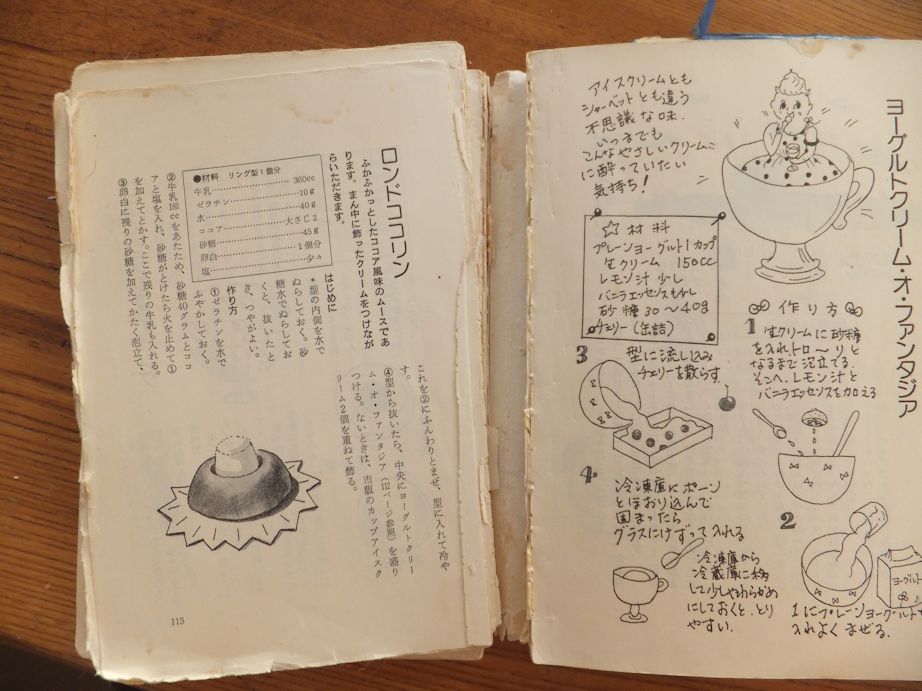 ロンドココリン
ふかふかっとしたココア風味のムースであ
ります。まん中に飾ったクリームをつけなが
らいただきます。
●材料 リング型1個分
牛乳……360cc
ゼラチン……10g
水……40g
ココア……大さじ2
砂糖……45g
卵白……1個分
塩……少々
はじめに
*型の内側を水で
ぬらしておく。砂
糖水でぬらしてお
くと、抜いたと
き、つやがよい。
作り方
①ゼラチンを水で
ふやかしておく。
②牛乳180ccをあたため、砂糖40グラムとココ
アと塩を入れ、砂糖がとけたら火を止めて①
を加えてとかす。ここで残りの牛乳も入れる。
③卵白に残りの砂糖を加えてかたく泡立て、
これを②にふんわりとまぜ、型に入れて冷や
す。
④型から抜いたら、中央にヨーグルトクリー
ム・オ・ファンタジア(112ページ参照)を盛り
つける。ないときは、市販のカップアイスク
リーム2個を重ねて飾る。
113
ヨーグルトクリーム・オ・ファンタジア
アイスクリームとも
シャーベットとも違う
不思議な味.
いつまでも
こんなやさしいクリーム
に酔っていたい
気持ち!
☆材料
プレーンヨーグルト1カップ
生クリーム 150cc
レモン汁 少し
バニラエッセンスも少し
砂糖 30〜40g
チェリー(缶詰)
作り方
1
生クリームに砂糖
を入れ、トロ〜リと
なるまで泡立てる.
そこへ、レモン汁と
バニラエッセンスを加える
2
ヨーグルト
1にプレーンヨーグルトを
入れよくまぜる.
3
型に流し込み
チェリーを散らす.
4.
冷凍庫にポーン
とほおり込んで
固まったら
グラスにけずって入れる
冷凍庫から
冷蔵庫に移
して少しやわらかめ
にしておくと、とり
やすい.